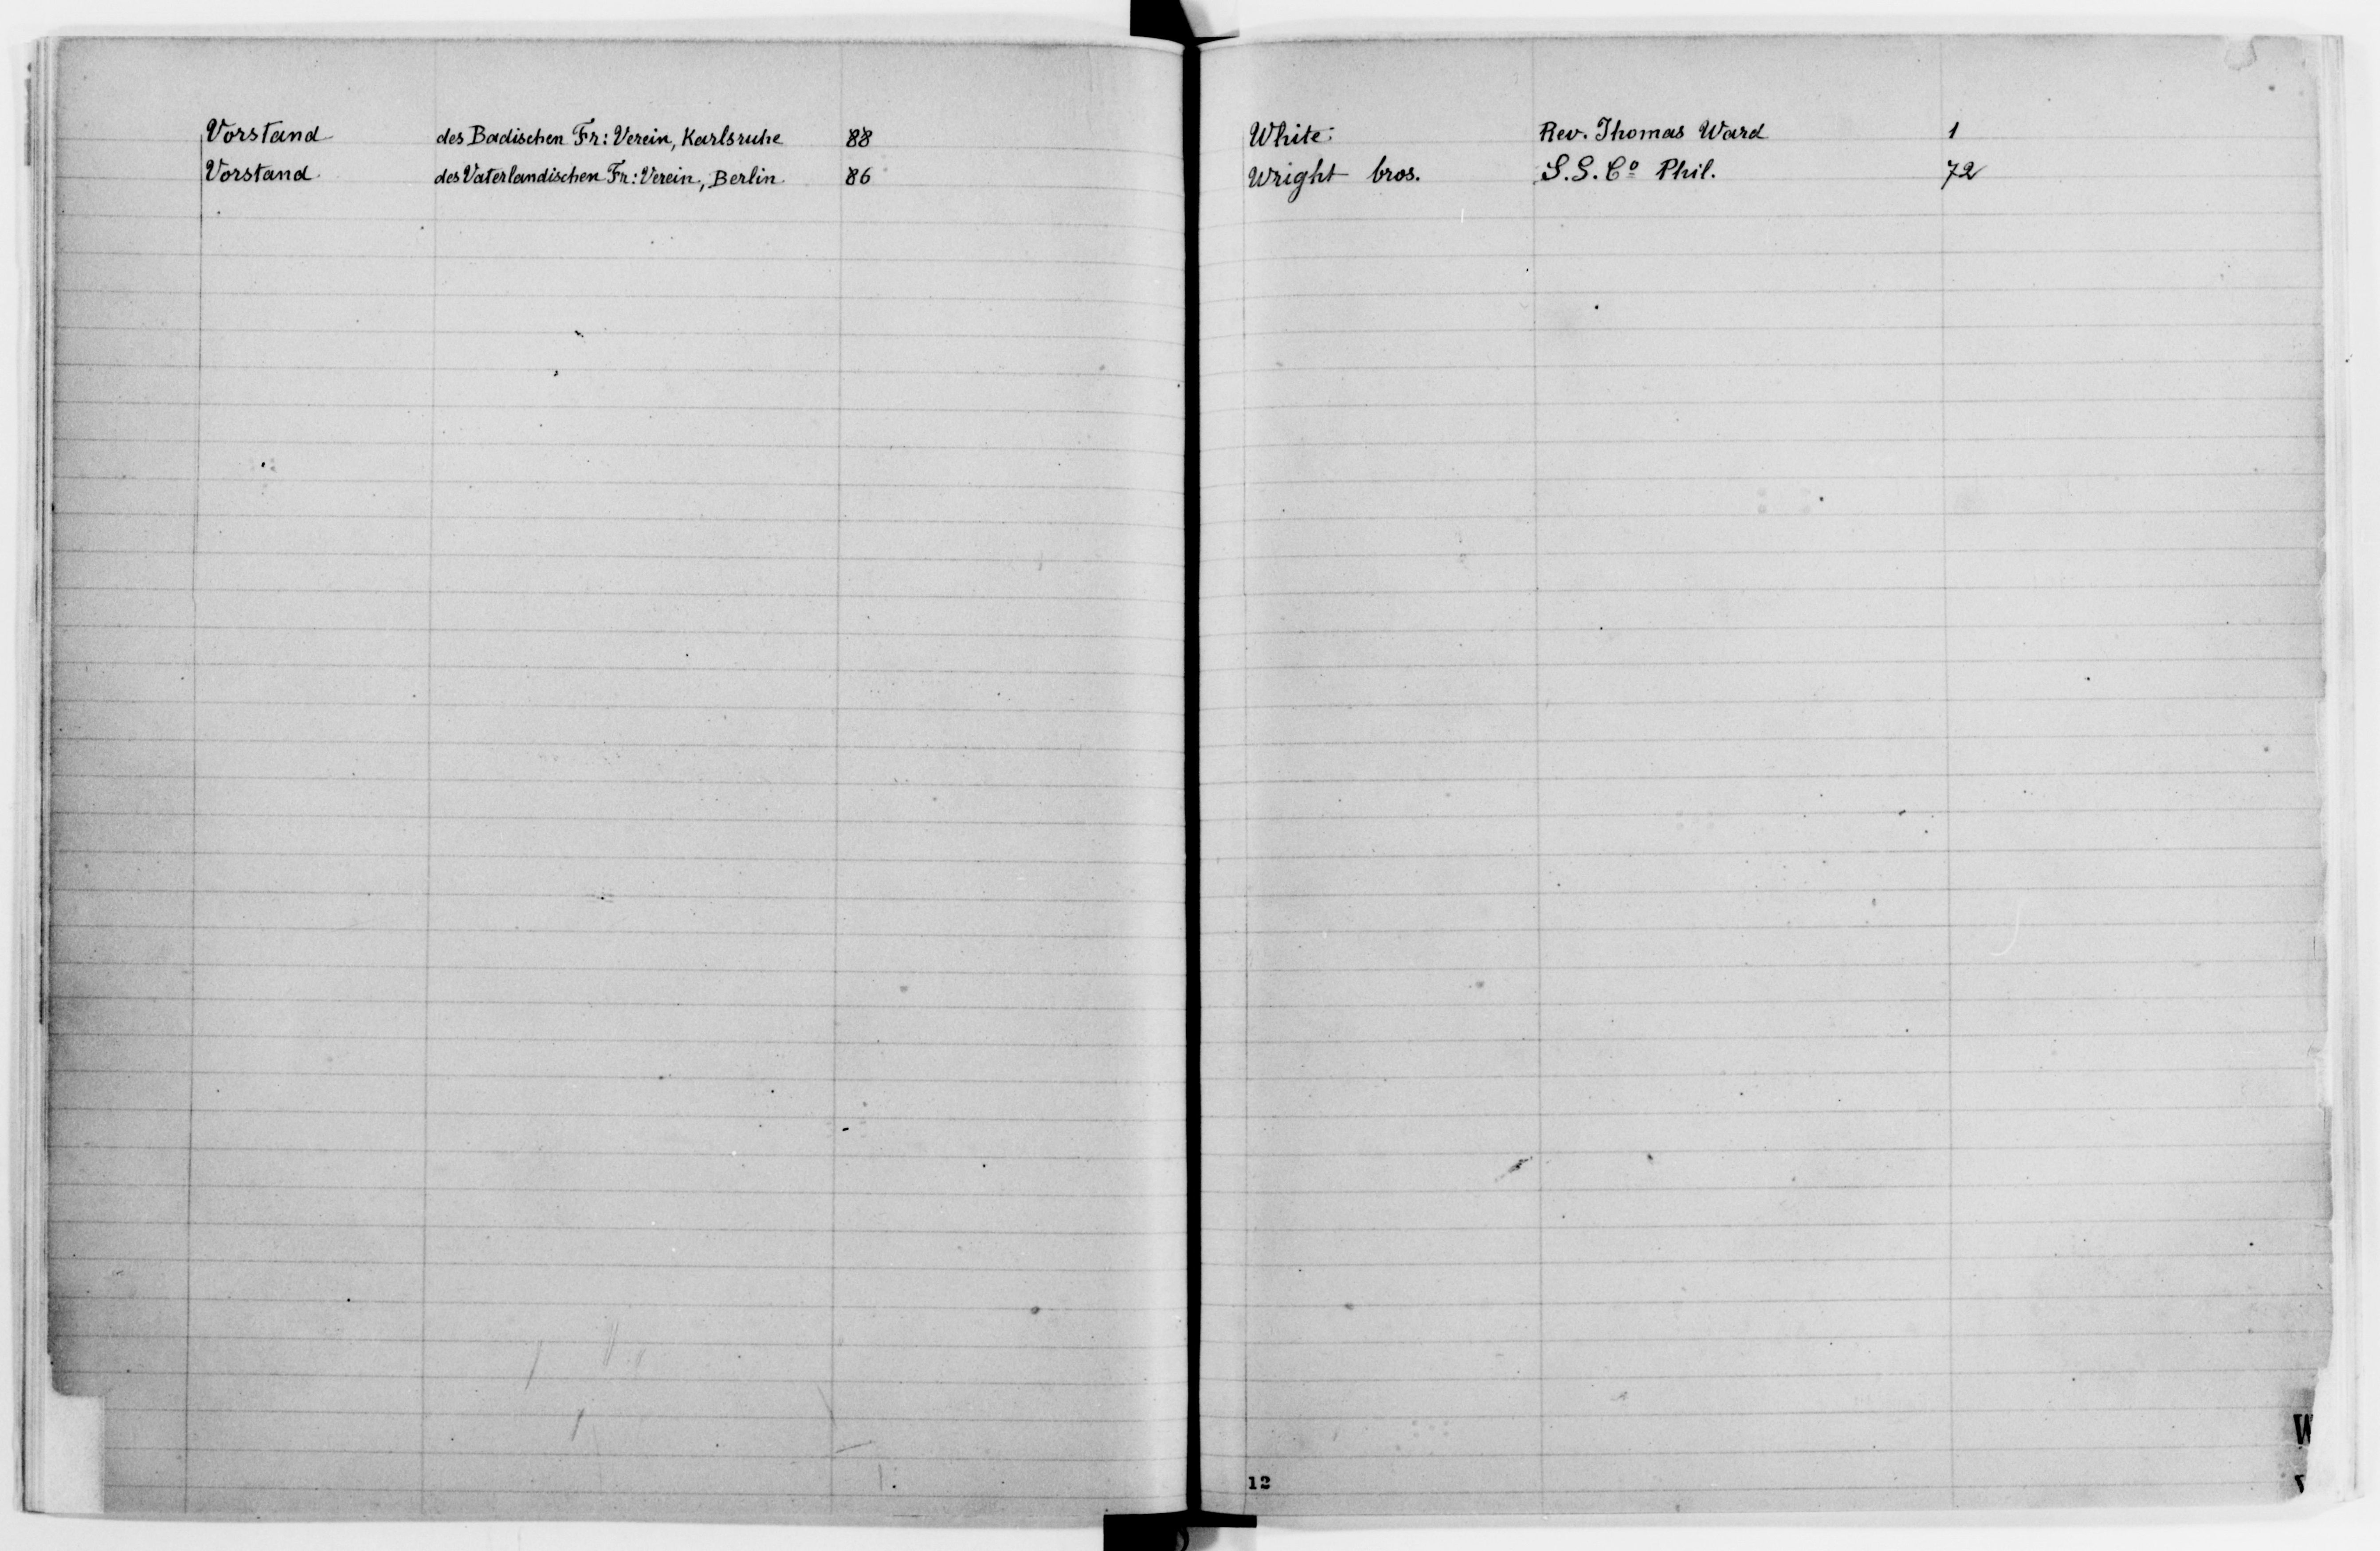 Vorstand des Badischen Fr: Verein, Karlsruhe 88
Vorstand des Vaterlandischen Fr: Verein, Berlin 86
White Rev. Thomas Ward 1
Wright bros. S.S. Cº Phil. 72
W
12